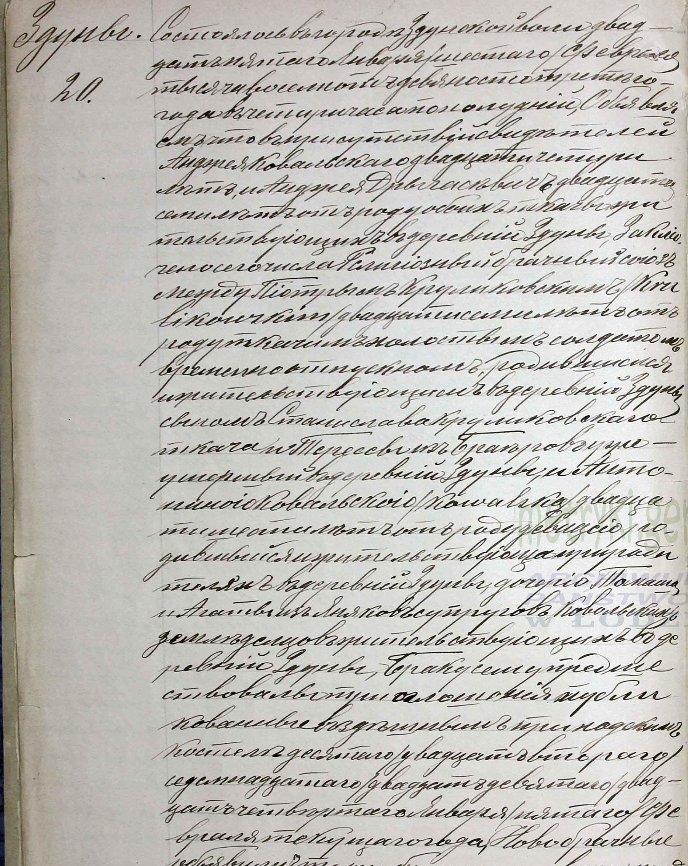 Здуны.
20.
Состоялось въ городѣ Здунской воли двад-
цать пятаго Января /шестаго/ Февраля
тысяча восемьсотъ девяносто третяго
года въ четыри часа по полудній, Объявля
емъ что въ присутствій свидѣтелей
Андрея Ковальскаго двадцати четыри
лѣтъ, и Андрея двадцать
семи лѣтъ отъ роду обоихъ ткачей жи
тельствующихъ въ деревній Здуны Заклю
чено сего числа Религіозный брачный союзъ
между Піотрымъ Круликовскимъ /Kru
likowskim/ двадцати семи лѣтъ отъ
роду ткачимъ холостымъ солдатомъ
временно отпускномъ, родившимся
и жительствующимъ въ деревній Здуны,
сыномъ Станислава Круликовскаго
ткача и Тересы изъ уже
умершый въ деревній Здуны, и Анто
ниною Ковальскою /Kowalska/ двадца
ти шести лѣтъ отъ роду девицею ро
дившийся и жительствующа при роди
теляхъ въ деревній Здуны, дочью Томаша
и Агаты изъ супруговъ Ковальскихъ
земледѣлцовъ жительствующихъ въ де
ревній Здуны, Браку сему предше
ствовалы три оглошенія публи
кованные въ здѣшнымъ приходскимъ
костелѣ десятаго /двадцать втораго/
седмнадцатаго /двадцать девятаго/ двад-
цать четвертаго Января /пятаго/ Фе
враля текущаго года, Новобрачные
ARCHIWUM
PAŃSTWOWE
W ŁODZI